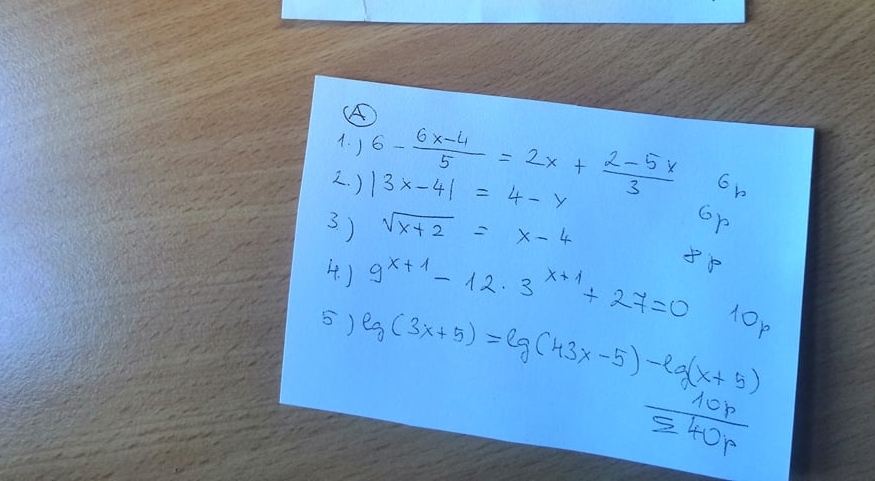 A
1.) 6 - \frac{6x-4}{5} = 2x + \frac{2-5x}{3} 6p
2.) |3x-4| = 4-x 6p
3.) \sqrt{x+2} = x-4 8p
4.) 9^{x+1} - 12 \cdot 3^{x+1} + 27 = 0 10p
5) lg(3x+5) = lg(43x-5) - lg(x+5)
10p
Σ 40p